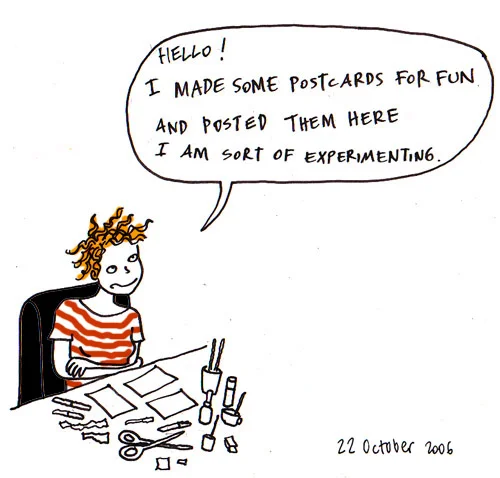 HELLO!
I MADE SOME POSTCARDS FOR FUN
AND POSTED THEM HERE
I AM SORT OF EXPERIMENTING.
22 October 2006